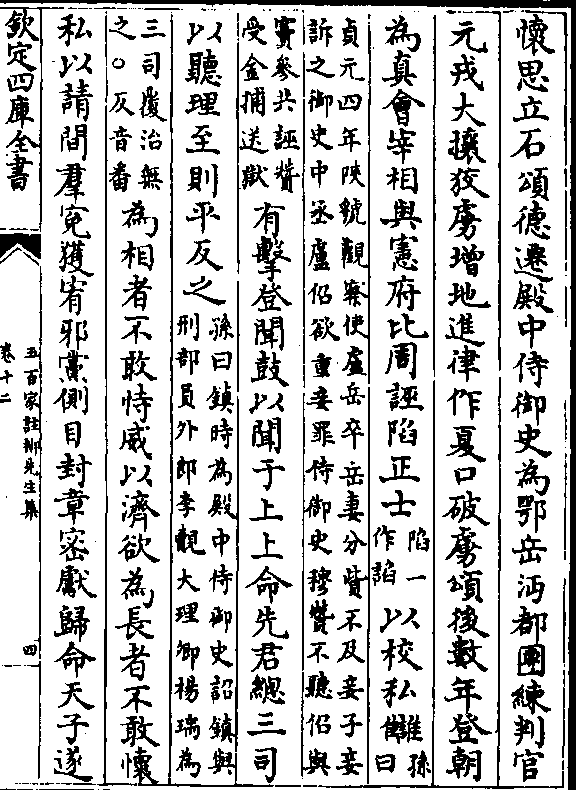 懷思立石頌德遷殿中侍御史為鄂岳沔都團練判官
元戎大攘狡虜增地進律作夏口破虜頌後數年登朝
為真會宰相與憲府比周誣陷正士陷一作謟以校私讎孫曰
貞元四年陝虢觀察使盧岳卒岳妻分貲不及妾子妾
訴之御史中丞盧佋欲重妾罪侍御史穆贊不聽佋與
竇參共誣贊受金捕送獄有擊登聞鼓以聞于上上命先君總三司
以聽理至則平反之孫曰鎮時為殿中侍御史詔鎮與刑部員外郎李覿大理卿楊瑀為
三司覆治無之○反音番為相者不敢恃威以濟欲為長者不敢懷
私以請間羣寃獲宥邪黨側目封章密獻歸命天子遂
欽定四庫全書
五百家註柳先生集
卷十二
四